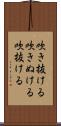 吹き抜ける
吹きぬける
吹抜ける